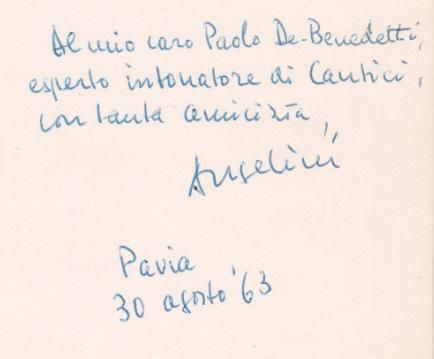 Al mio caro Paolo De-Benedetti,
esperto intonatore di Cantici,
con tanta amicizia,
Angelini
Pavia
30 agosto '63